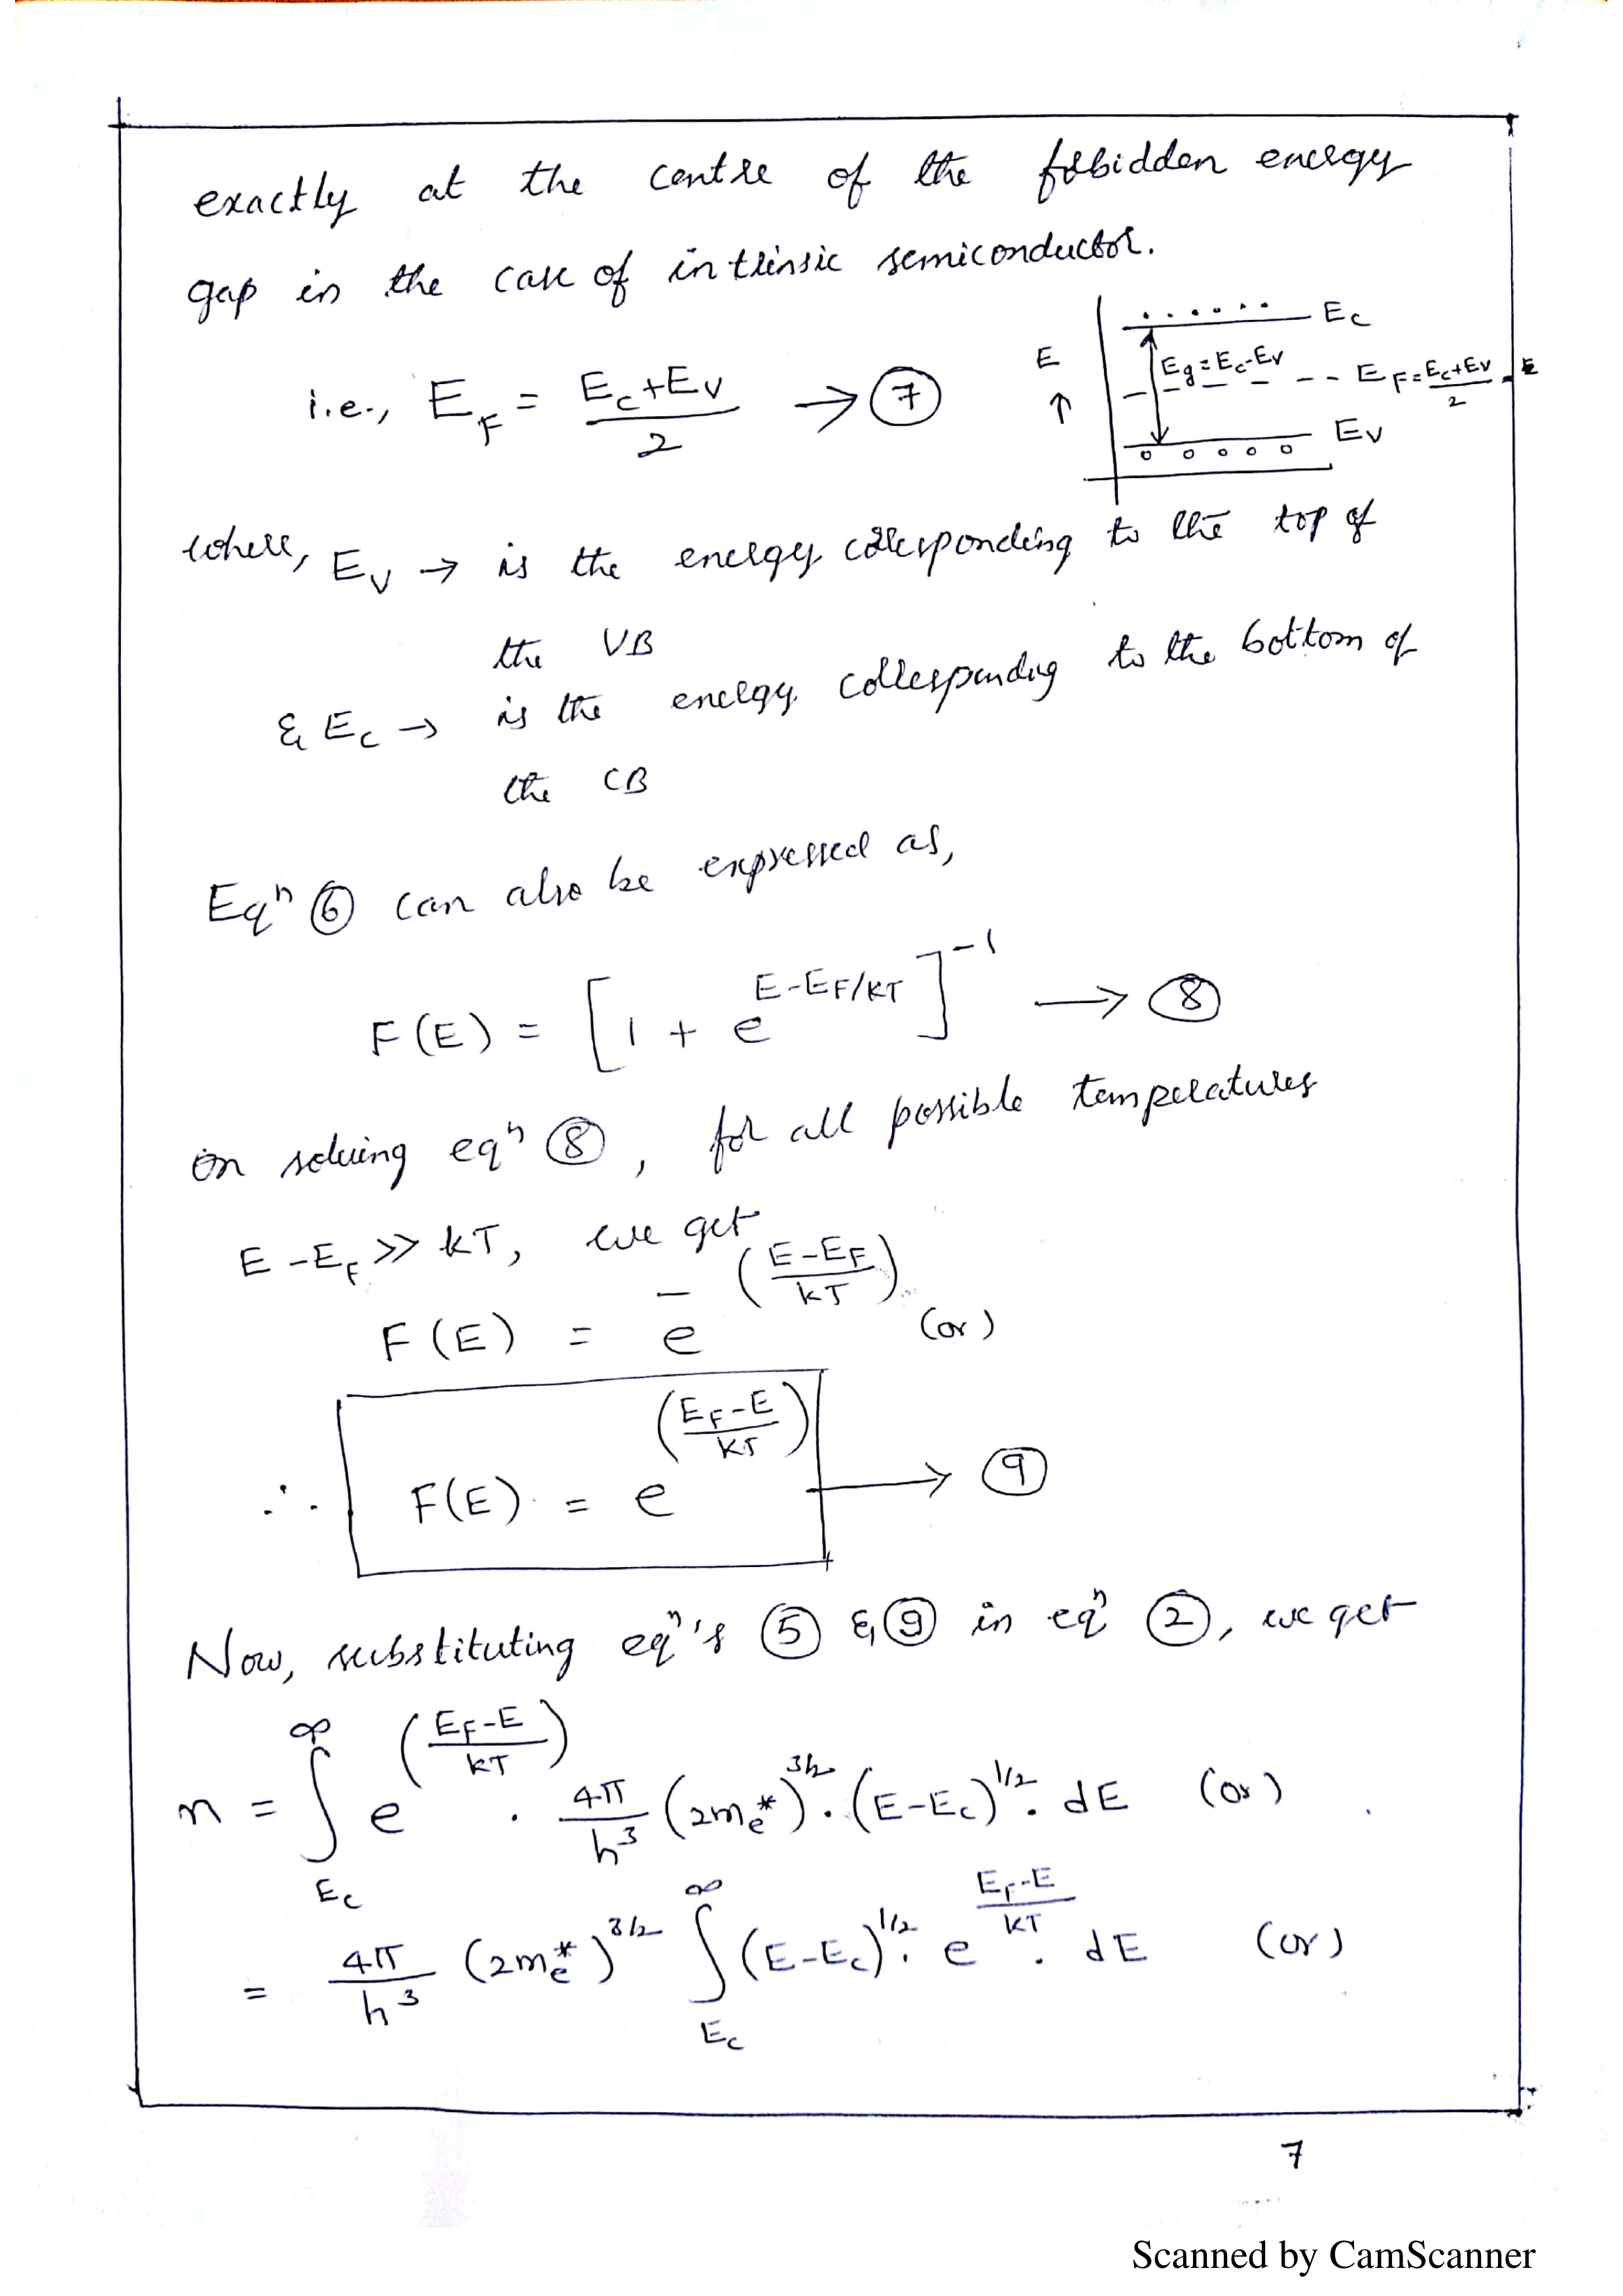 exactly at the centre of the forbidden energy
gap in the case of intrinsic semiconductor.
i.e., E_F = (E_C+E_V)/2 → ⑦
E ↑
E_C
Eg=E_C-E_V
E_F=(E_C+E_V)/2
E_V
where, E_V → is the energy corresponding to the top of
the VB
& E_C → is the energy corresponding to the bottom of
the CB
Eqⁿ ⑥ can also be expressed as,
F(E) = [1 + e^{E-E_F/KT}]^{-1} → ⑧
on solving eqⁿ ⑧, for all possible temperatures
E-E_F >> kT, we get
F(E) = e^{-((E-E_F)/kT)} (or)
∴ F(E) = e^{((E_F-E)/KT)} → ⑨
Now, substituting eqⁿ's ⑤ & ⑨ in eqⁿ ②, we get
n = ∫_{E_C}^{∞} e^{((E_F-E)/kT)} . 4π/h³ (2m_e^*)^{3/2} . (E-E_C)^{1/2} . dE (or)
= 4π/h³ (2m_e^*)^{3/2} ∫_{E_C}^{∞} (E-E_C)^{1/2} . e^{(E_F-E)/KT} . dE (or)
7
Scanned by CamScanner